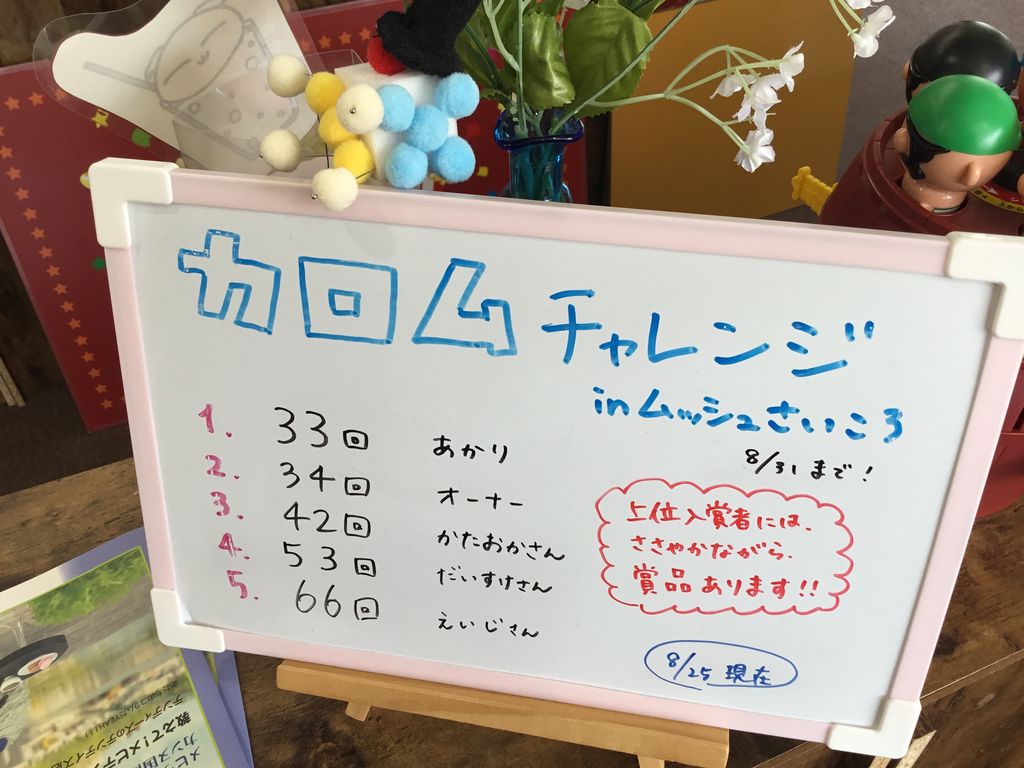 カロム チャレンジ
in ムッシュさいころ
8/31 まで!
1. 33回 あかり
2. 34回 オーナー
3. 42回 かたおかさん
4. 53回 だいすけさん
5. 66回 えいじさん
上位入賞者には、
ささやかながら、
賞品あります!!
8/25 現在